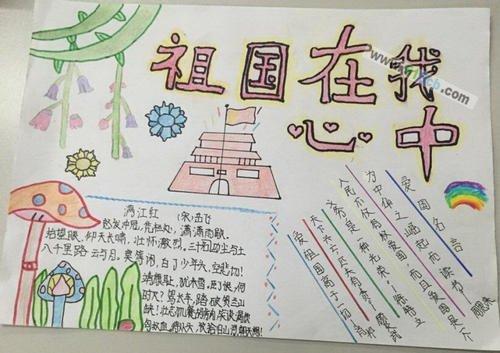 祖国在我
心中
满江红 (宋)岳飞
怒发冲冠,凭栏处,潇潇雨歇。
抬望眼,仰天长啸,壮怀激烈。三十功名尘与土
八千里路云与月。莫等闲,白了少年头,空悲切!
靖康耻,犹未雪,臣子恨,何
时灭?驾长车,踏破贺兰山
缺!壮志饥餐胡虏肉,笑谈渴饮
匈奴血。待从头,收拾旧山河,朝天阙!
爱国名言
为中华之崛起而读书—周恩来
人民不仅有权爱国,而且爱国是个
义务,是一种光荣。—徐特立
天下兴亡匹夫有责 顾炎武
爱祖国高于一切 肖邦